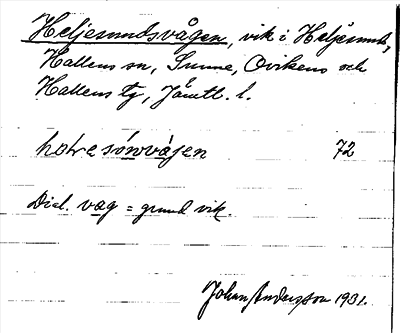 Heljesundsvågen, vik i Heljesund,
Hallens sn, Sunne, Ovikens och
Hallens tg, Jämtl. l.
hołʋesónʋvájen 72
Dial. vag = grund vik.
Johan Andersson 1931.